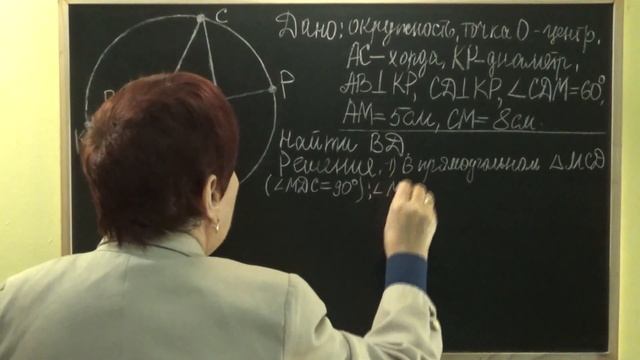 C
P
K
Дано: окружность, точка O - центр,
AC - хорда, KP - диаметр,
AB⊥KP, CD⊥KP, ∠CDM=60°,
AM = 5 см, CM = 8 см.
Найти BD.
Решение. 1) В прямоугольном △MCD
(∠MDC = 90°); ∠M